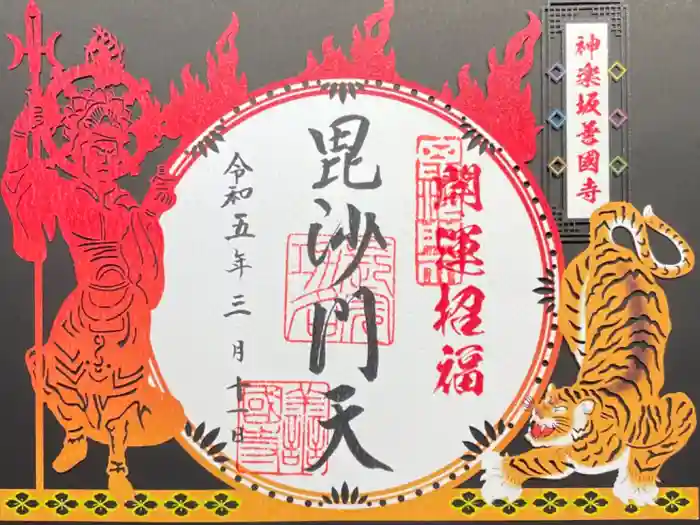 神楽坂善國寺
開運招福
毘沙門天
令和五年三月十一日